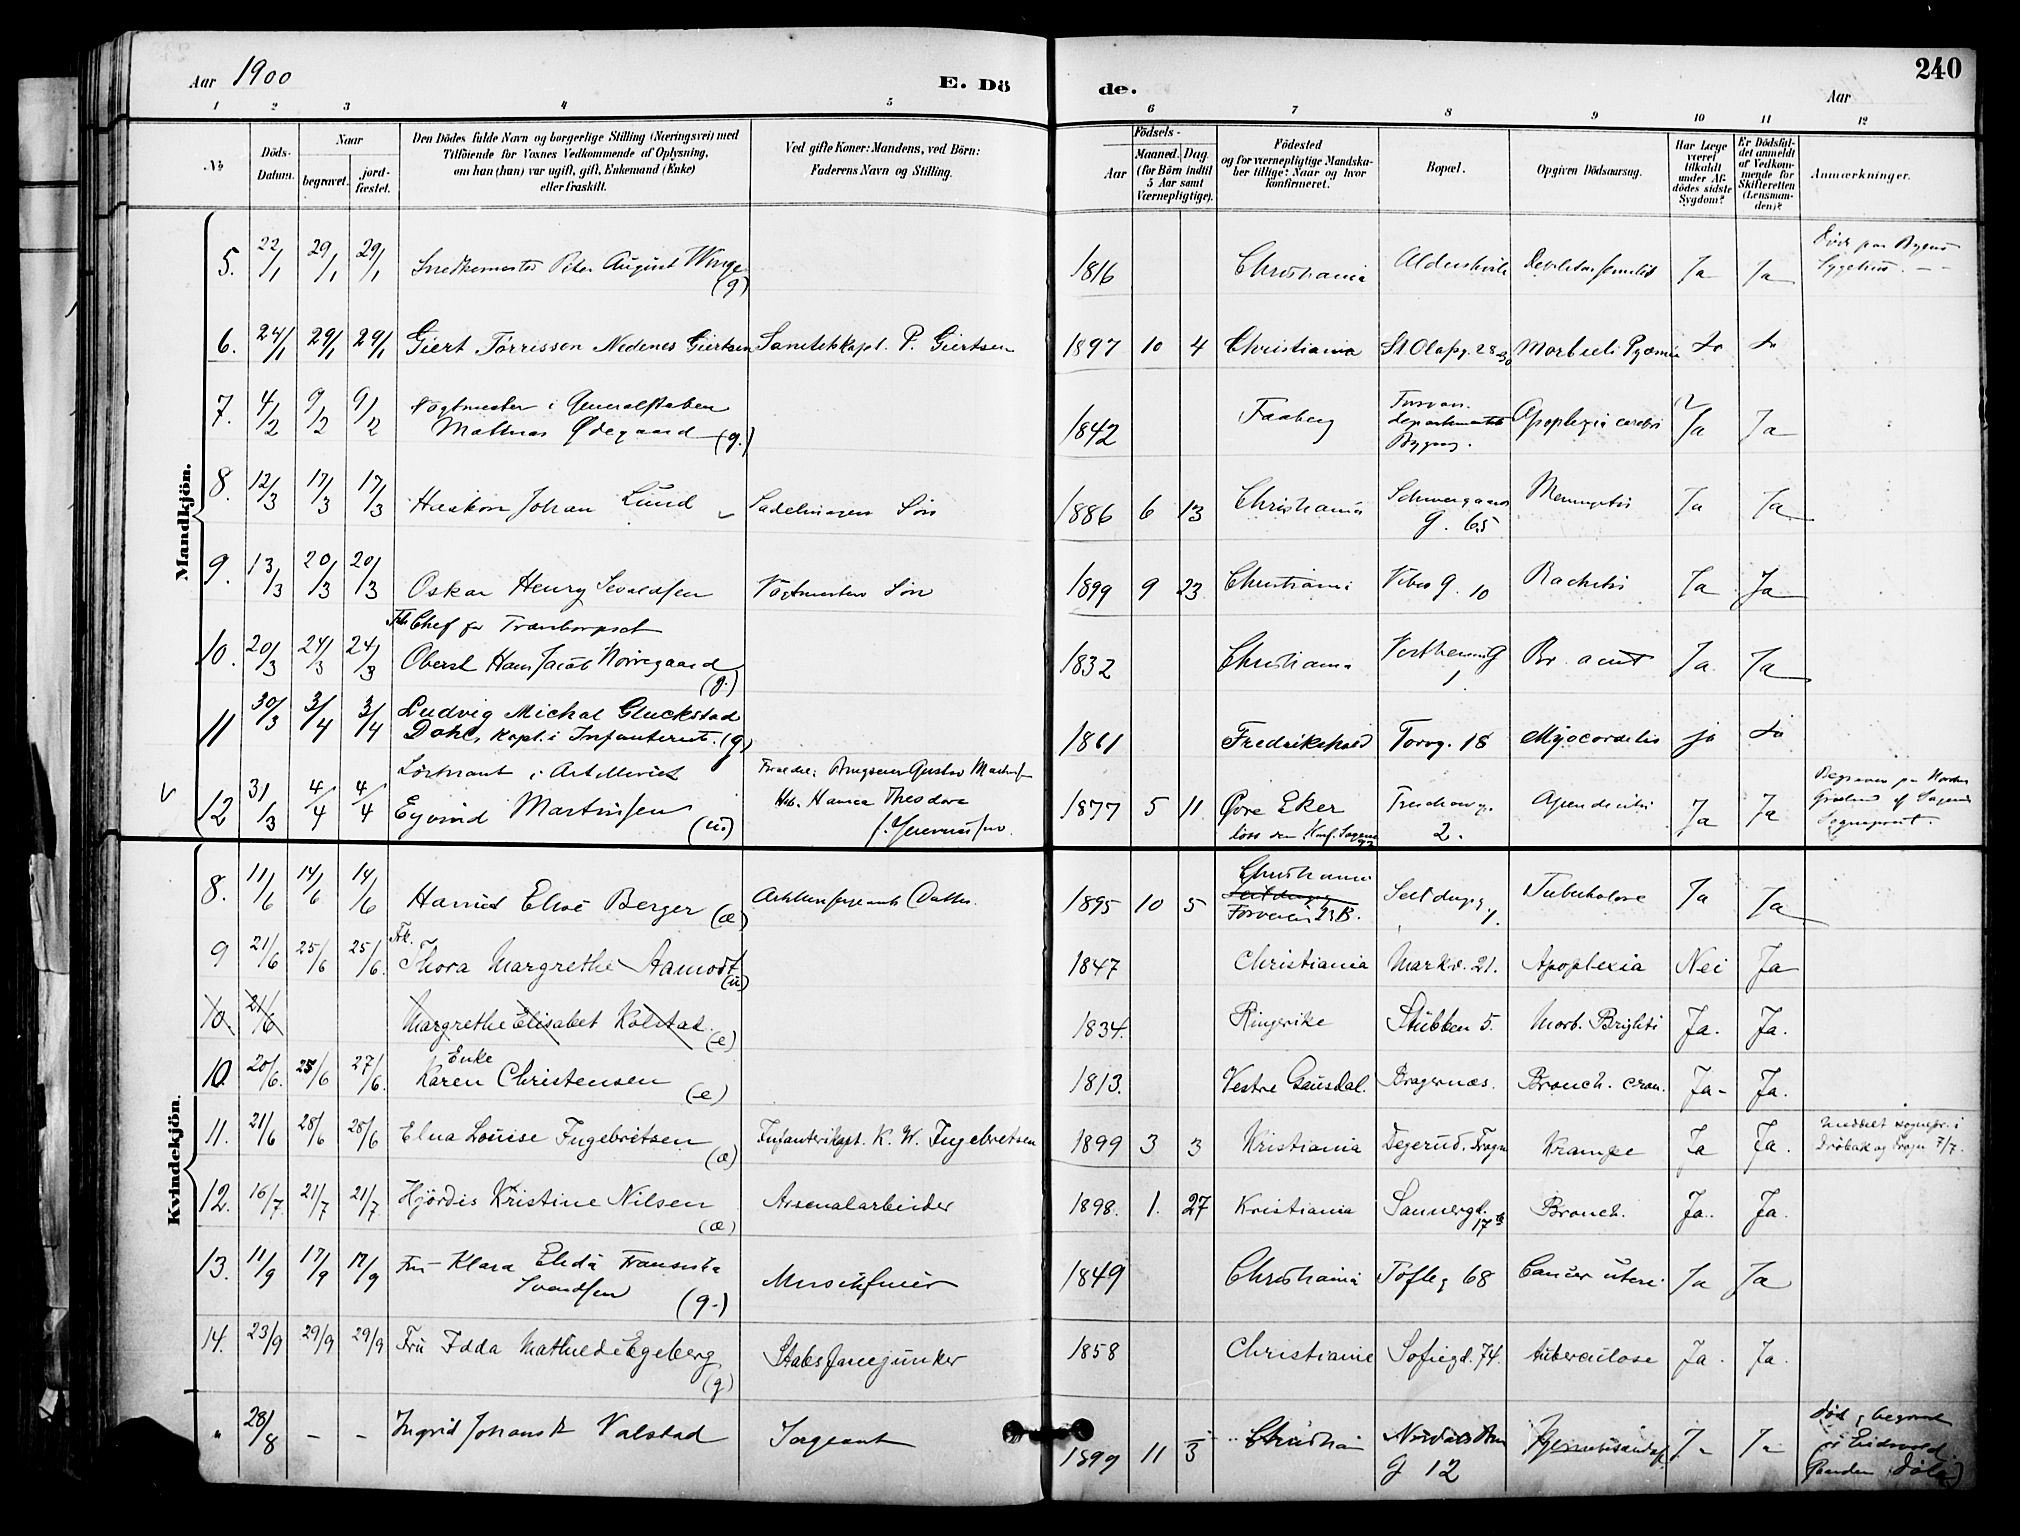 Aar 1900
E. Dö
de.
Aar
240
1 2 3 4 5 6 7 8 9 10 11 12
No
Döds-
Datum.
Naar
begravet.
jord-
fæstet.
Den Dödes fulde Navn og borgerlige Stilling (Næringsvei) med
Tilföiende for Voxnes Vedkommende af Oplysning,
om han (hun) var ugift, gift, Enkemand (Enke)
eller fraskilt.
Ved gifte Koner: Mandens, ved Börn:
Faderens Navn og Stilling.
Födsels-
Aar
Maaned. Dag.
(for Börn indtil
5 Aar samt
Værnepligtige).
Födested
og for værnepligtige Mandska-
ber tillige: Naar og hvor
konfirmeret.
Bopæl.
Opgiven Dödsaarsag.
Har Læge
været
tilkaldt
under Af-
dödes sidste
Sygdom?
Er Dödsfal-
det anmeldt
af Vedkom-
mende for
Skifteretten
(Lensman-
den)?
Anmærkninger.
Mandkjön.
5. 22/1 29/1 29/1 Peter August Winge (g) 1816 Christiania Ja Ja
6. 24/1 29/1 29/1 Giert Törrisson Nedenes Giertsen Sanitetskapt. P. Giertsen 1897 10 4 Christiania St. Olafsg. 28 Morbili Pyæmie
7. 4/2 9/2 9/2 Vagtmester i Generalstaben
Mathias Ødegaard (g.) 1842 Faaberg Apoplexia cerebri Ja Ja
8. 12/3 17/3 17/3 Haakon Johan Lund Sadelmagers Sön 1886 6 13 Christiania Schweigaards
g. 65 Ja Ja
9. 13/3 20/3 20/3 Oskar Henry Vagtmesters Sön 1899 9 23 Christiania Vibes g. 10 Rachitis Ja Ja
10. 20/3 24/3 24/3 Chef for
Oberst Hans Jacob Nörregaard (g.) 1832 Christiania 1. Br. acut Ja Ja
11 30/3 3/4 3/4 Ludvig Michal Gluckstad
Dahl, Kapt. i Infanteriet. (g) 1861 Fredrikshald Torvg. 18 Myocarditis ja
12 31/3 4/4 4/4 Löitnant i Artilleriet
Eyvind Martinsen (u.) Gustav
Theodora 1877 5 11 Øvre Eker 2. Ja Ja
Kvindekjön.
8. 11/6 14/6 14/6 Elise Berger (æ) Datter 1895 10 5 Christiania
23 B. Seilduksg. 1. Tuberkulose Ja Ja
9 21/6 25/6 25/6. Frk.
Thora Margrethe Aamodt (u) 1847 Christiania Markv. 21. Apoplexia Nei Ja
10 21/6 Margrethe Elisabet Kolstad. (e) 1834. Ringerike Stubben 5. Morb. Brightii Ja. Ja.
10. 20/6. 25/6 27/6. Enke
Karen Christensen (e) 1813. Vestre Gausdal. Bragernæs. Bronch. cron. Ja- Ja.
11. 21/6 28/6 28/6 Elna Louise Ingebretsen (æ) Infanterikapt. K. W. Ingebretsen 1899 3 3 Kristiania Degerud, Frogn Krampe Ja Ja. Meddelt sognepr. i
Dröbak og Frogn 7/7.
12. 16/7. 21/7 21/7 Hjördis Kristine Nilsen (æ) Arsenalarbeider 1898. 1. 27 Kristiania Sannergd. 17 b Bronch. Ja. Ja.
13. 11/9 17/9 17/9 Fru Klara Elida Fransiska
Svendsen (g.) 1849 Christiania Tofteg 68 Cancer uteri Ja Ja
14. 23/9 29/9 29/9 Fru Idda Mathilde Egeberg (g) Stabsfanejunker 1858 Christiania Sofiegd. 74. tuberculose Ja. Ja.
" 28/8 - - Ingrid Johanne Valstad Sergeant 1899 11 3 Christiania
g 12 Ja Ja Död og begravet